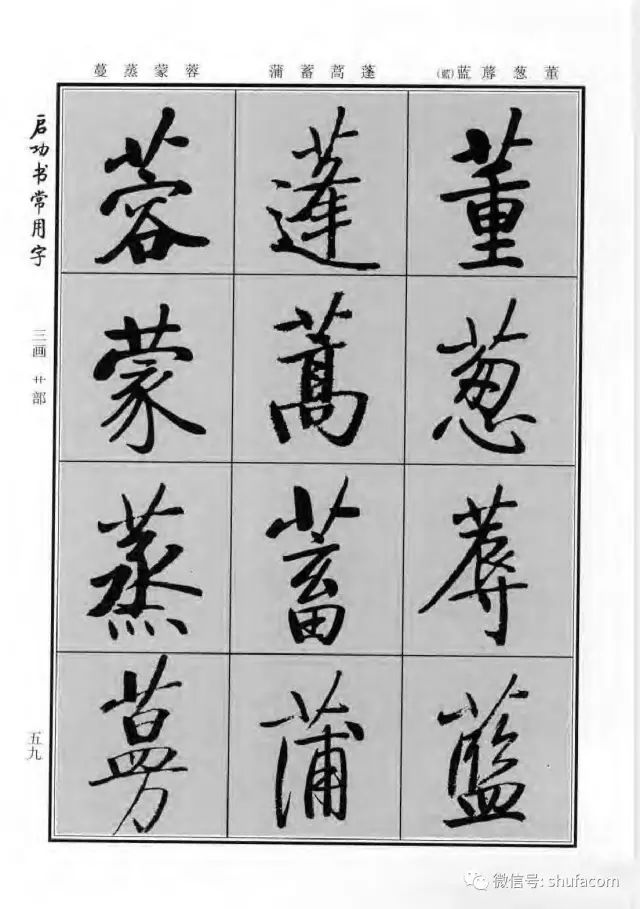 董葱蓐蓝(藍)
蓬蒿蓄蒲
蓉蒙蒸蔓
董葱蓐藍
蓬蒿蓄蒲
蓉蒙蒸蔓
启功书常用字
三画 艹部
五九
微信号: shufacom